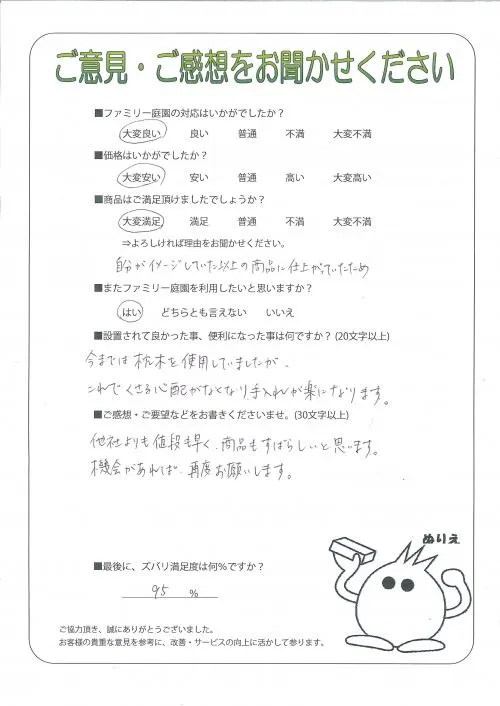 ご意見・ご感想をお聞かせください
■ファミリー庭園の対応はいかがでしたか？
大変良い 良い 普通 不満 大変不満
■価格はいかがでしたか？
大変安い 安い 普通 高い 大変高い
■商品はご満足頂けましたでしょうか？
大変満足 満足 普通 不満 大変不満
⇒よろしければ理由をお聞かせください。
自分がイメージしていた以上の商品に仕上がっていたため
■またファミリー庭園を利用したいと思いますか？
はい どちらとも言えない いいえ
■設置されて良かった事、便利になった事は何ですか？(20文字以上)
今までは枕木を使用していましたが、
これでくさる心配がなくなり手入れが楽になります。
■ご感想・ご要望などをお書きくださいませ。(30文字以上)
他社よりも値段も早く、商品もすばらしいと思います。
機会があれば、再度お願いします。
ぬりえ
■最後に、ズバリ満足度は何％ですか？
95 %
ご協力頂き、誠にありがとうございました。
お客様の貴重な意見を参考に、改善・サービスの向上に活かして参ります。